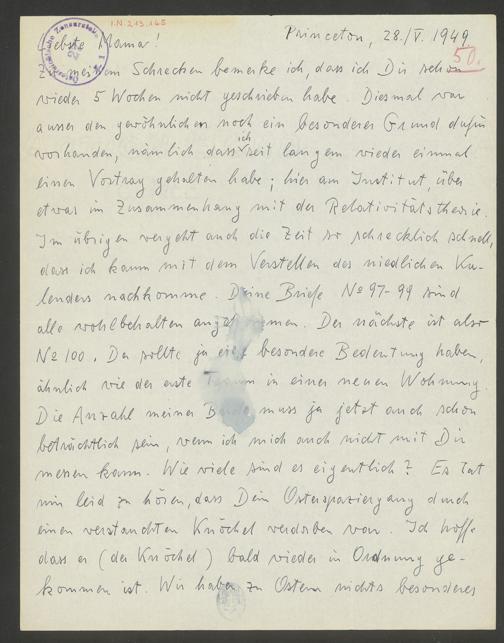 I.N. 213.145
Princeton, 28./V. 1949
50.
Liebste Mama!
Zu meinem Schrecken bemerke ich, dass ich Dir schon
wieder 5 Wochen nicht geschrieben habe. Diesmal war
ausser den gewöhnlichen noch ein besonderer Grund dafür
vorhanden, nämlich dass ich seit langem wieder einmal
einen Vortrag gehalten habe; hier am Institut, über
etwas im Zusammenhang mit der Relativitätstheorie.
Im übrigen vergeht auch die Zeit so schrecklich schnell,
dass ich kaum mit dem Verstellen des niedlichen Ka-
lenders nachkomme. Deine Briefe No 97-99 sind
alle wohlbehalten angekommen. Der nächste ist also
No 100. Der sollte ja eine besondere Bedeutung haben,
ähnlich wie der erste Traum in einer neuen Wohnung.
Die Anzahl meiner Briefe muss ja jetzt auch schon
beträchtlich sein, wenn ich mich auch nicht mit Dir
messen kann. Wie viele sind es eigentlich? Es tat
mir leid zu hören, dass Dein Osterspaziergang durch
einen verstauchten Knöchel verdorben war. Ich hoffe
dass er (der Knöchel) bald wieder in Ordnung ge-
kommen ist. Wir haben zu Ostern nichts besonderes